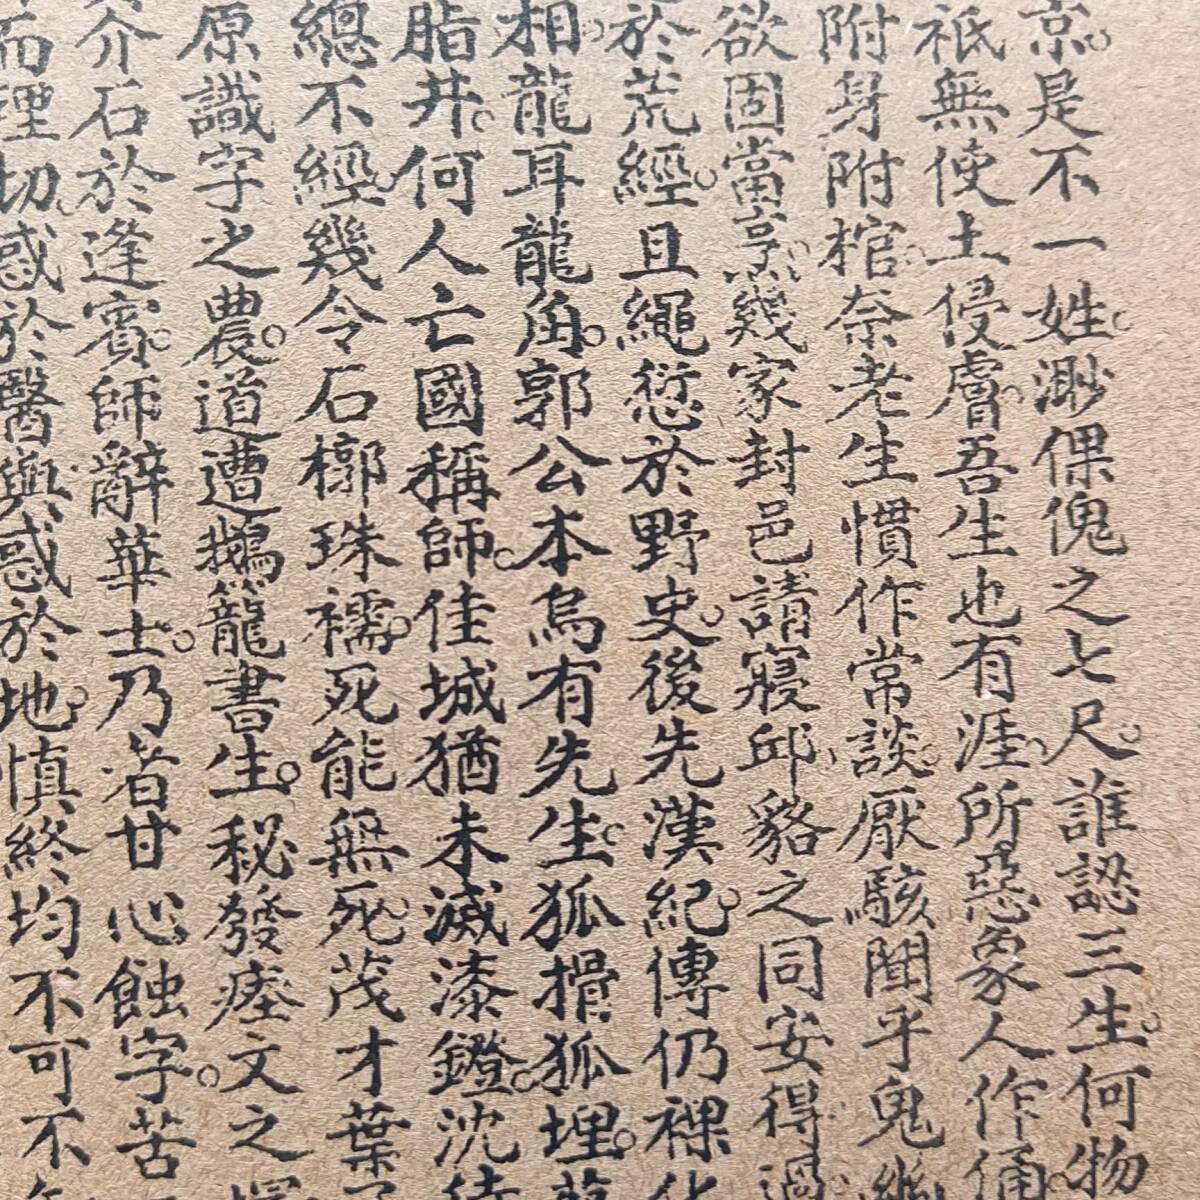 京是不一姓渺倮傀之七尺誰認三生何物
祇無使土侵膚吾生也有涯所惡象人作俑
附身附棺奈老生慣作常談厭駭聞乎鬼
欲固當烹幾家封邑請寢邱貉之同安得過
於荒經且繩愆於野史後先漢紀傳仍裸
相龍耳龍角郭公本烏有先生狐搰狐埋
脂井何人亡國稱師佳城猶未滅漆鐙沈待
總不經幾令石槨珠襦死能無死茂才葉
原識字之農道遭鵝籠書生秘發瘞文之
介石於逢賓師辭華士乃者甘心蝕字苦
而理切感於醫與感於地慎終均不可不